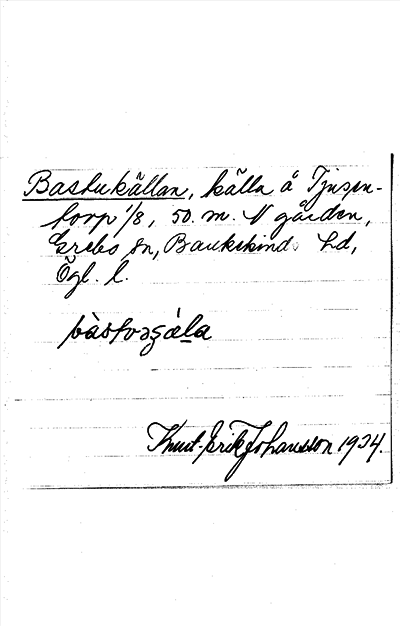 Bastukällan, källa å Tjusin-
torp 1/8, 50. m. N gården,
Grebo sn, Bankekinds hd,
Ögl. l.
Knut-Erik Johansson 1934.